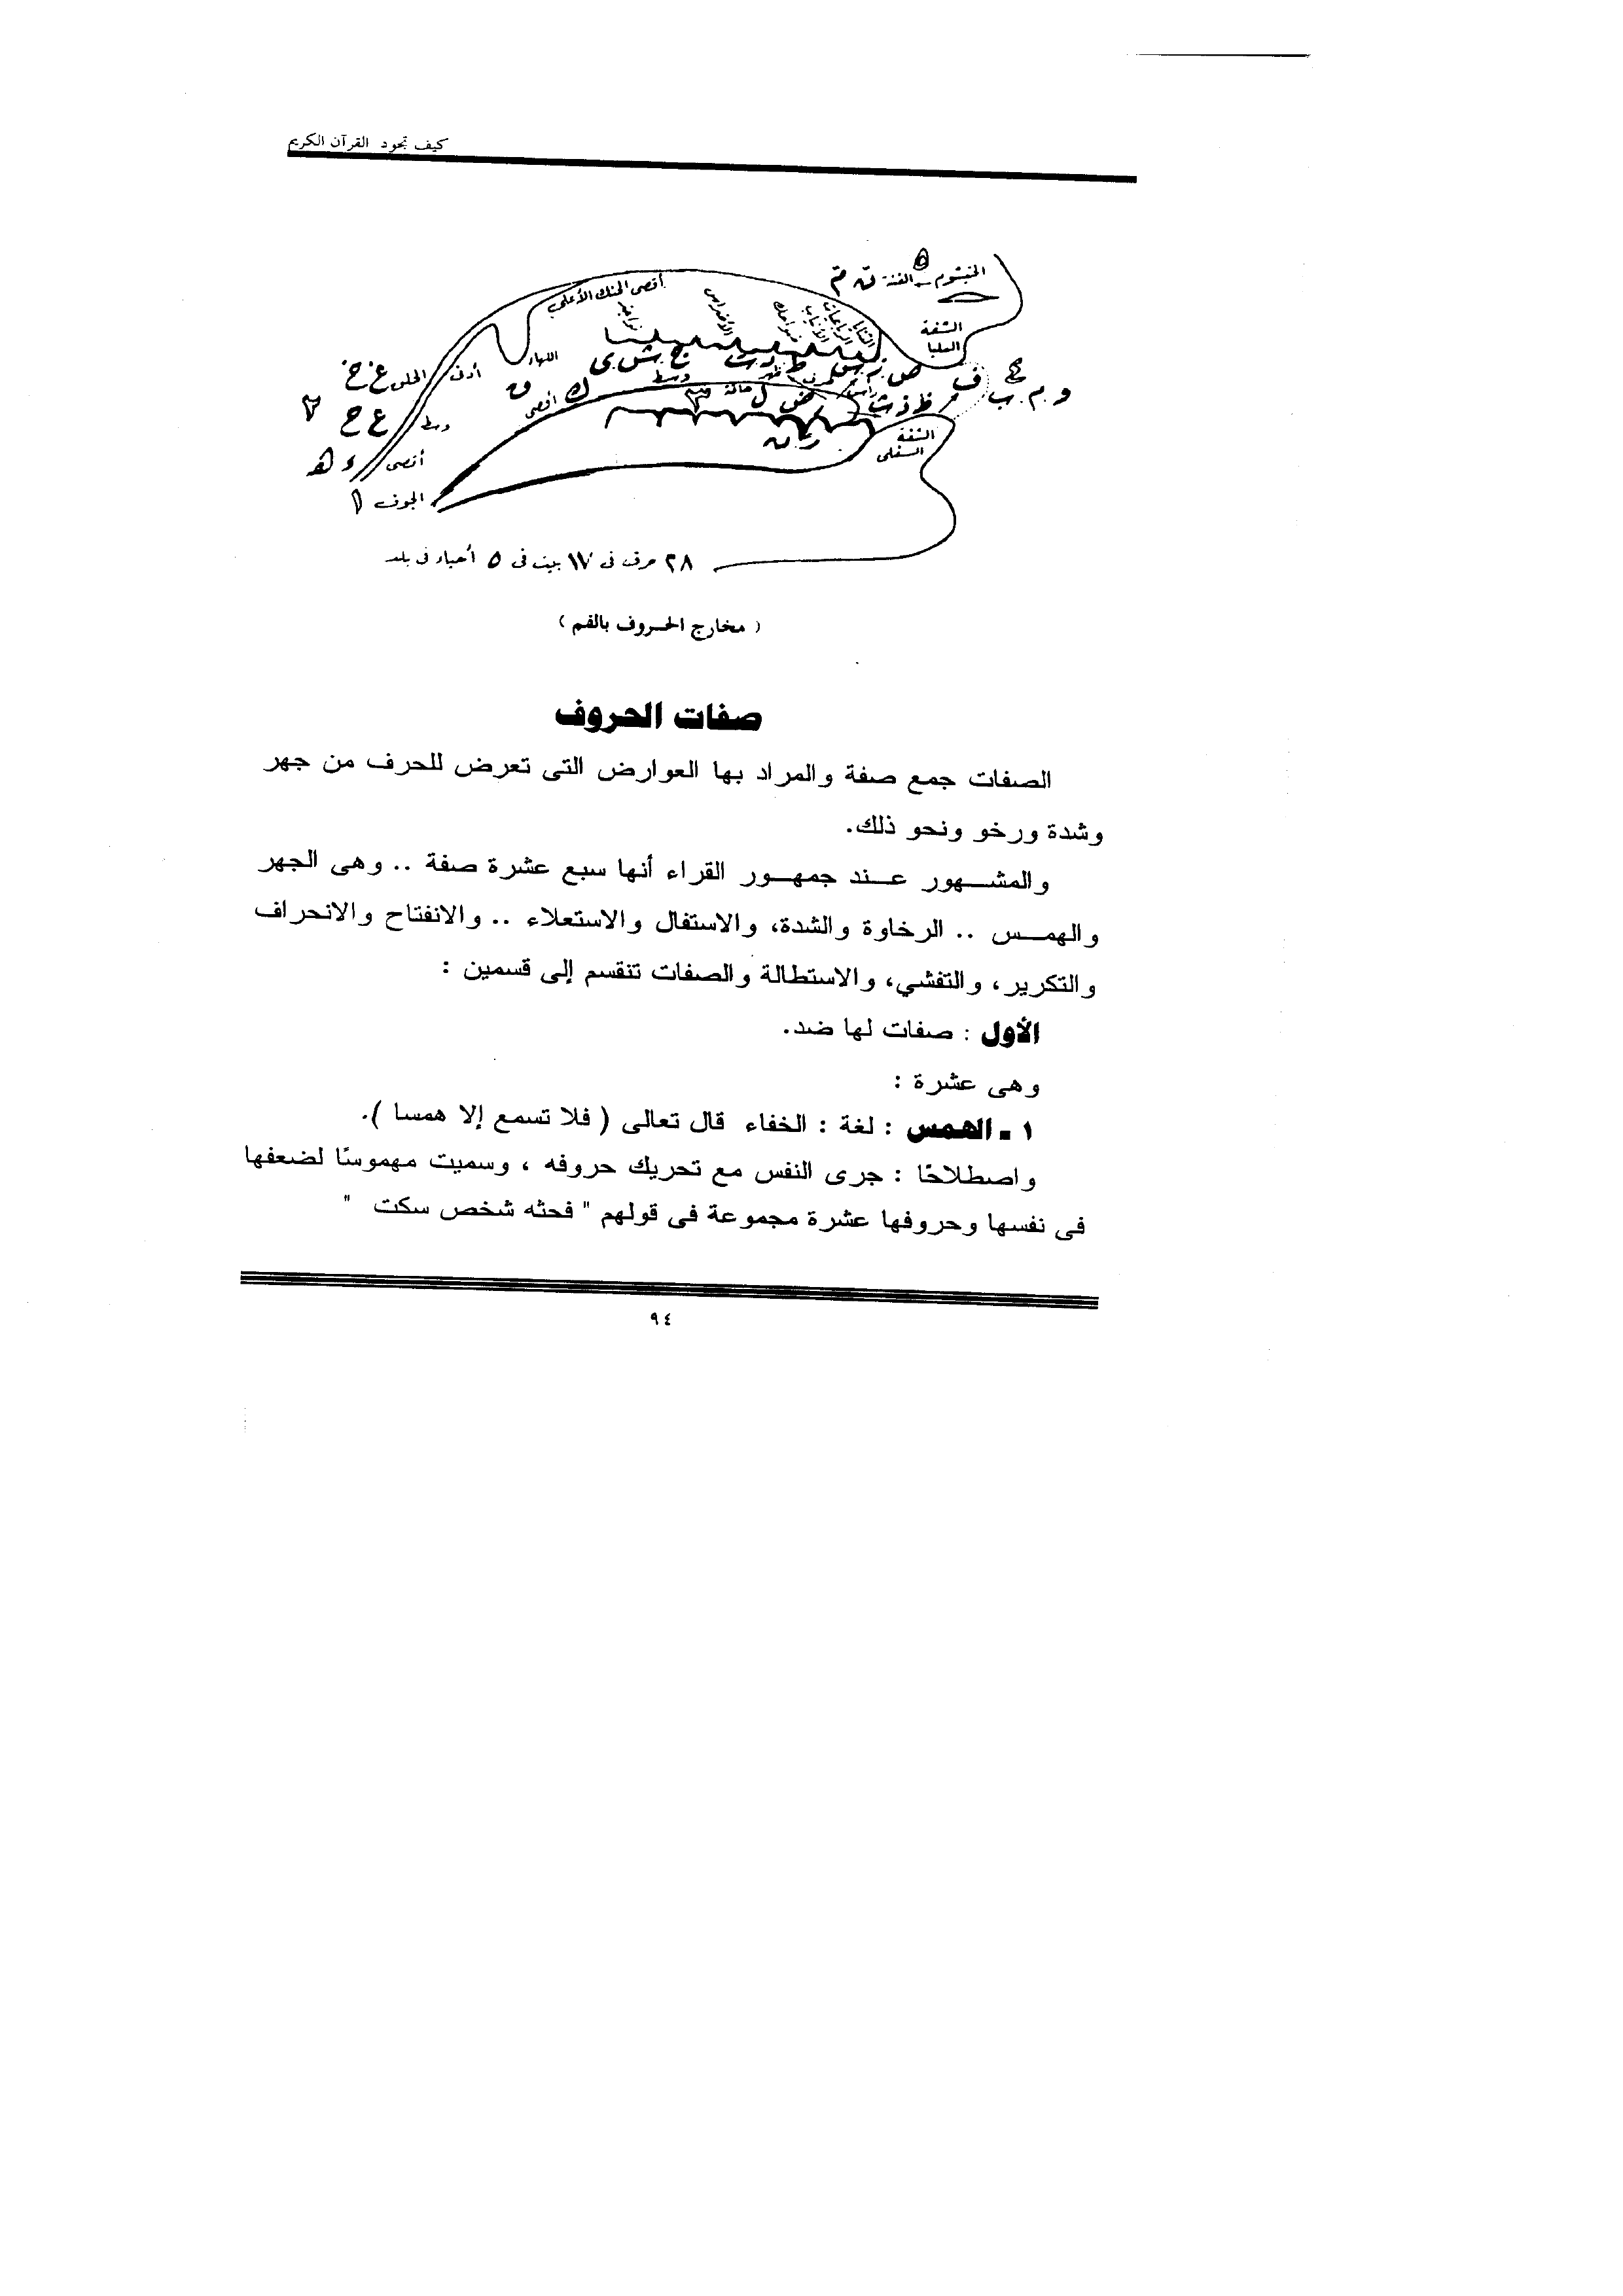 كيف تجود القرآن الكريم
الخيشوم - الغنة ن م
أقصى الحنك الأعلى
الأضراس
الشفة
العليا
اللهاة
أدنى الحلق غ خ
وسط ع ح
أقصى ء هـ
الجوف ا
ج ش ى
ط د ت
ص ز س
ظ ذ ث
ف
و م ب
وسط
ق
أقصى ك
ض ل حافة
رأس
الشفة
السفلى
٢٨ حرف فى ١٧ بيت فى ٥ أحياء فى بلد
( مخارج الحروف بالفم )
صفات الحروف
الصفات جمع صفة والمراد بها العوارض التى تعرض للحرف من جهر
وشدة ورخو ونحو ذلك.
والمشهور عند جمهور القراء أنها سبع عشرة صفة .. وهى الجهر
والهمس .. الرخاوة والشدة، والاستفال والاستعلاء .. والانفتاح والانحراف
والتكرير، والتفشي، والاستطالة والصفات تنقسم إلى قسمين :
الأول : صفات لها ضد.
وهى عشرة :
١ - الهمس : لغة : الخفاء قال تعالى ( فلا تسمع إلا همسا ).
واصطلاحًا : جرى النفس مع تحريك حروفه ، وسميت مهموسًا لضعفها
فى نفسها وحروفها عشرة مجموعة فى قولهم " فحثه شخص سكت "
٩٤